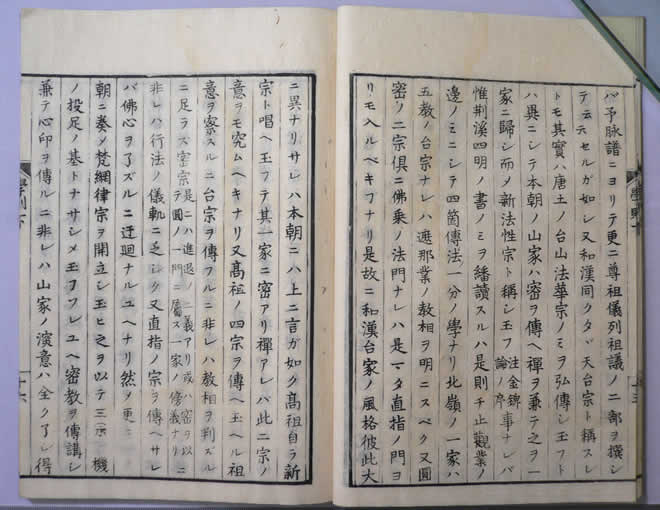 バ予脉譜ニヨリテ更ニ尊祖儀列祖議ノ二部ヲ撰シ
テ云云セルガ如シ又和漢同クタヾ天台宗ト稱スレ
トモ其實ハ唐土ノ台山法華宗ノミヲ弘傳シ玉フト
ハ異ニシテ本朝ノ山家ハ密ヲ傳ヘ禪ヲ兼テ之ヲ一
家ニ歸シ而メ新法性宗ト稱シ玉フ注金錍論ノ序事ナレバ
惟荆溪四明ノ書ノミヲ繙讀スルハ是則チ止觀業ノ
邊ノミニシテ四箇傳法一分ノ學ナリ北嶺ノ一家ハ
五教ノ台宗ナレハ遮那業ノ教相ヲ明ニスベク又圓
密ノ二宗俱ニ佛乗ノ法門ナレハ是一タ直指ノ門ヨ
リモ入ルベキフナリ是故ニ和漢台家ノ風格彼此大
ニ異ナリサレハ本朝ニハ上ニ言ガ如ク高祖自ラ新
宗ト唱ヘ玉フテ其一家ニ密アリ禪アレバ此二宗ノ
意ヲモ究ムヘキナリ又高祖ノ四宗ヲ傳ヘ玉ヘル祖
意ヲ察スルニ台宗ヲ傳フルニ非レハ教相ヲ判ズル
ニ足ラズ密宗是ニハ進退ノ二義アリ或ハ密ヲ以テ圓ノ一門ニ屬ス一家ノ傍義ナリニ
非レハ行法ノ儀軌ニ乏シク又直指ノ宗ヲ傳ヘサレ
バ佛心ヲ了ズルニ迂廻ナルユヘナリ然ヲ更ニ
朝ニ奏メ梵網律宗ヲ開立シ玉ヒ之ヲ以テ三宗機
ノ投足ノ基トナサシメ玉フフレユヘ密教ヲ傳講シ
兼テ心印ヲ傳ルニ非レハ山家ノ演意ハ全ク了シ得